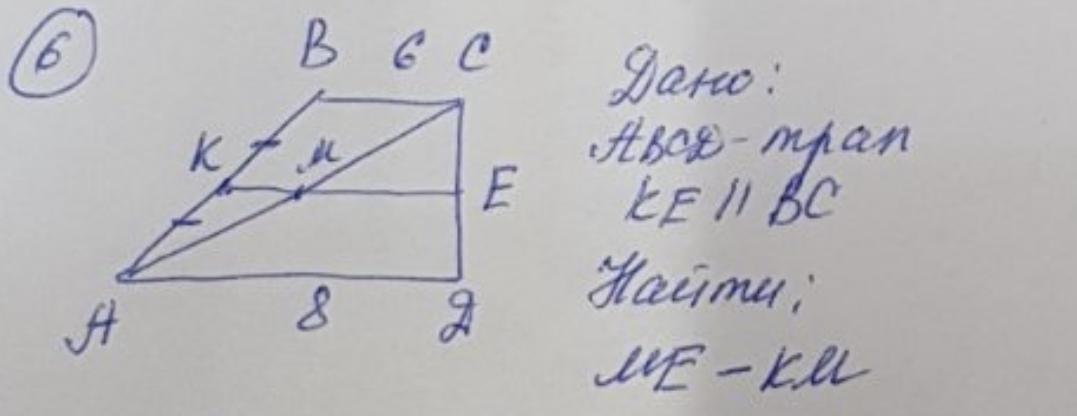 6
B 6 C
K M
E
A 8 Д
Дано:
АВСД - трап
KE || BC
Найти:
ME - KM